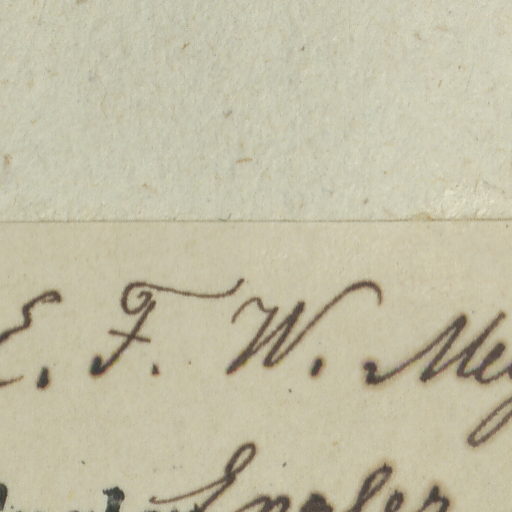 E. F. W. Mey
Engler